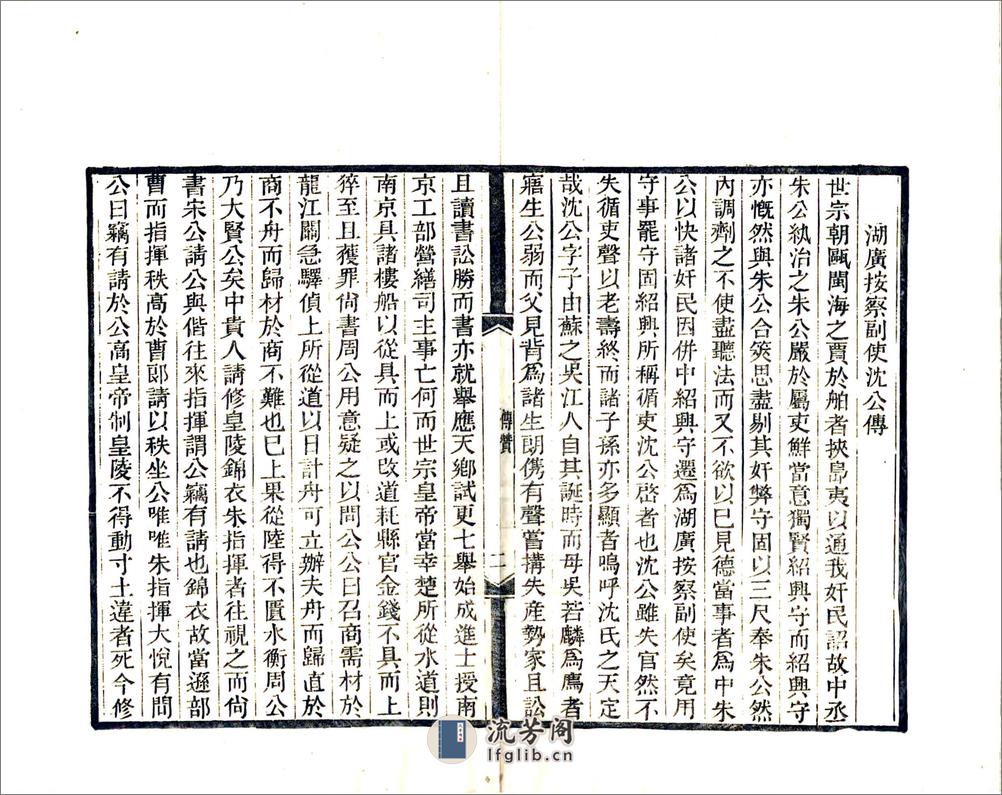 湖廣按察副使沈公傳
世宗朝甌閩海之賈於舶者挾島夷以通我奸民詔故中丞
朱公紈治之朱公嚴於屬吏鮮當意獨賢紹興守而紹興守
亦慨然與朱公合筴思盡剔其奸弊守固以三尺奉朱公然
內調劑之不使盡聽法而又不欲以已見德當事者爲中朱
公以快諸奸民因併中紹興守遷爲湖廣按察副使矣竟用
守事罷守固紹興所稱循吏沈公啓者也沈公雖失官然不
失循吏聲以老壽終而諸子孫亦多顯者嗚呼沈氏之天定
哉沈公字子由蘇之吳江人自其誕時而母吳若麟爲鷹者
寤生公弱而父見背爲諸生朗儁有聲嘗搆失産勢家且訟
傳贊
二
且讀書訟勝而書亦就舉應天鄉試更七舉始成進士授南
京工部營繕司主事亡何而世宗皇帝當幸楚所從水道則
南京具諸樓船以從具而上或改道耗縣官金錢不具而上
猝至且獲罪尚書周公用意疑之以問公公曰召商需材於
龍江關急驛偵上所從道以日計舟可立辦夫舟而歸直於
商不舟而歸材於商不難也巳上果從陸得不匱水衡周公
乃大賢公矣中貴人請修皇陵錦衣朱指揮者往視之而尚
書宋公請公與偕往來指揮謂公竊有請也錦衣故當遜部
曹而指揮秩高於曹郎請以秩坐公唯唯朱指揮大悅有問
公曰竊有請於公高皇帝制皇陵不得動寸土違者死今修
流芳阁
lfglib.cn